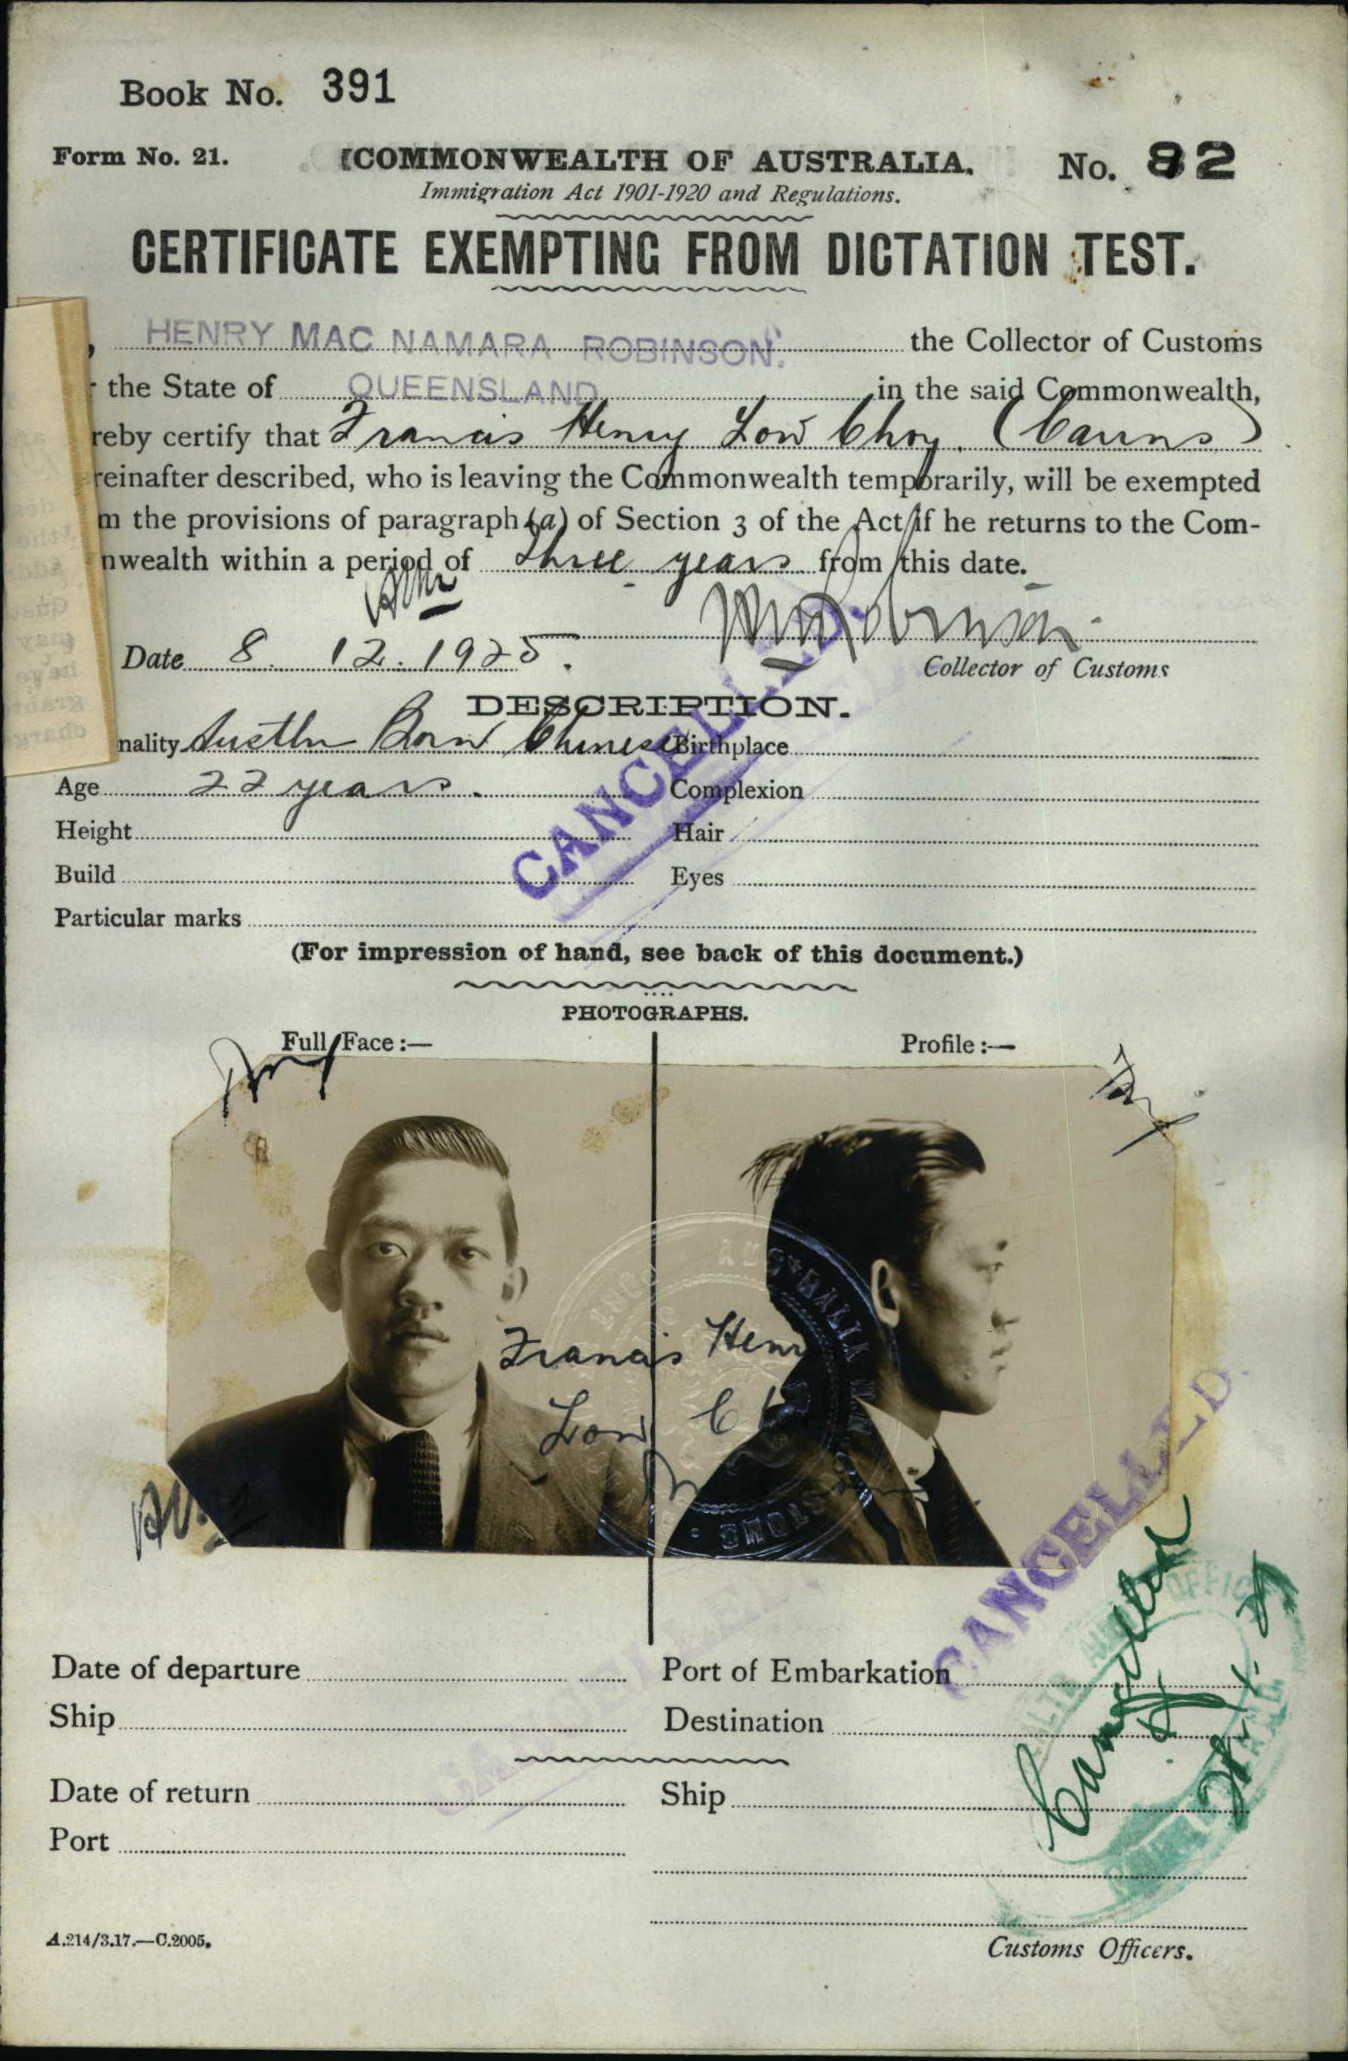 Book No. 391
Form No. 21.
COMMONWEALTH OF AUSTRALIA.
No. 82
Immigration Act 1901-1920 and Regulations.
CERTIFICATE EXEMPTING FROM DICTATION TEST.
, HENRY MAC NAMARA ROBINSON. the Collector of Customs
the State of QUEENSLAND in the said Commonwealth,
reby certify that Francis Henry Low Choy. (Cairns)
reinafter described, who is leaving the Commonwealth temporarily, will be exempted
m the provisions of paragraph (a) of Section 3 of the Act if he returns to the Com-
nwealth within a period of three years from this date.
Date 8. 12. 1925.
Collector of Customs
DESCRIPTION.
nality Austln Born Chinese Birthplace
Age 22 years. Complexion
Height Hair
Build Eyes
Particular marks
CANCELLED.
(For impression of hand, see back of this document.)
PHOTOGRAPHS.
Full Face :— Profile :—
Francis Henry
Low Ch
CUSTOMS
CANCELLED.
Date of departure Port of Embarkation
Ship Destination
CANCELLED.
Cancelled
Date of return Ship
Port
A.214/3.17.—C.2005.
Customs Officers.